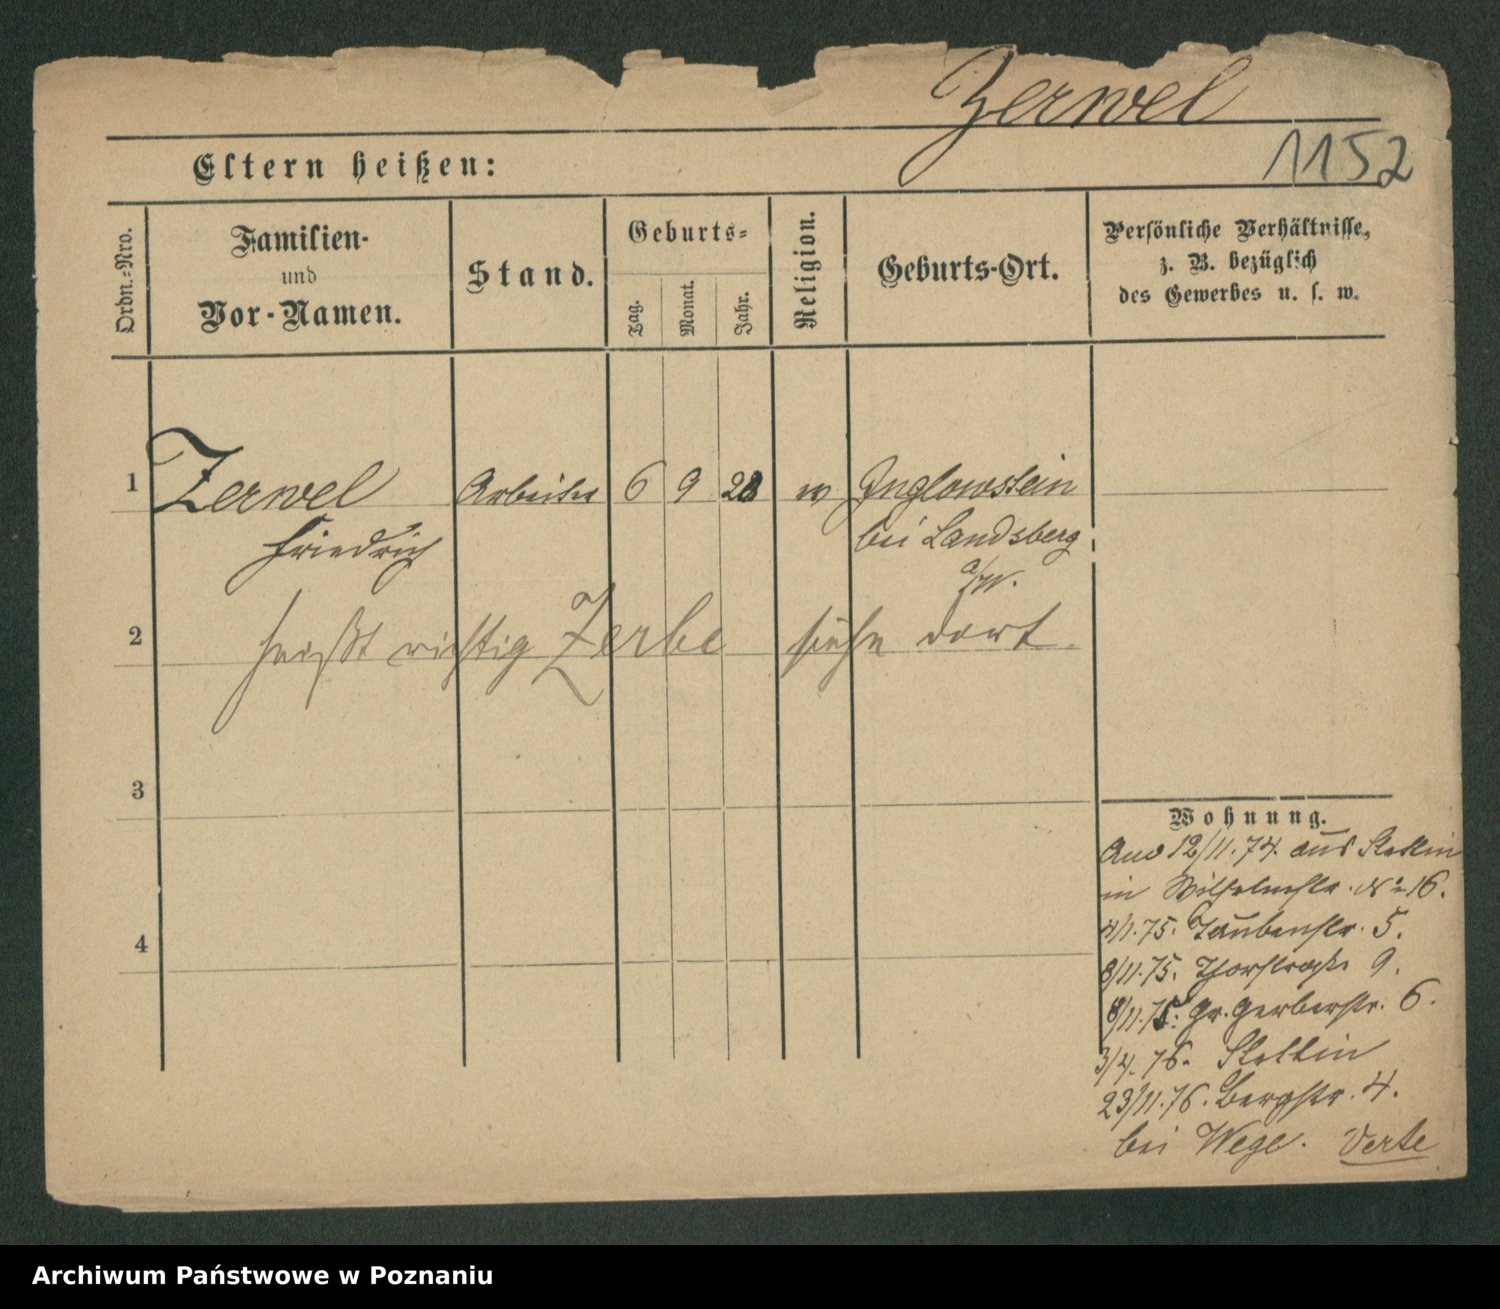 Zerwel
1152
Eltern heißen:
Ordn.-Nro.
Familien-
und
Vor-Namen.
Stand.
Geburts-
Tag.
Monat.
Jahr.
Religion.
Geburts-Ort.
Persönliche Verhältnisse,
z. B. bezüglich
des Gewerbes u. s. w.
1 Zerwel Arbeiter 6 9 28
bei Landsberg
Friedrich
a/W.
2 heißt richtig Zerbe siehe dort.
3
4
Wohnung.
12/11.74. aus Stettin
in Wilhelmstr. No 16.
75. Taubenstr. 5.
8/11.75. Thorstraße 9.
8/11.75. Gr. Gerberstr. 6.
3/4. 76. Stettin
23/11.76. Bergstr. 4.
bei Wege. Verte
Archiwum Państwowe w Poznaniu